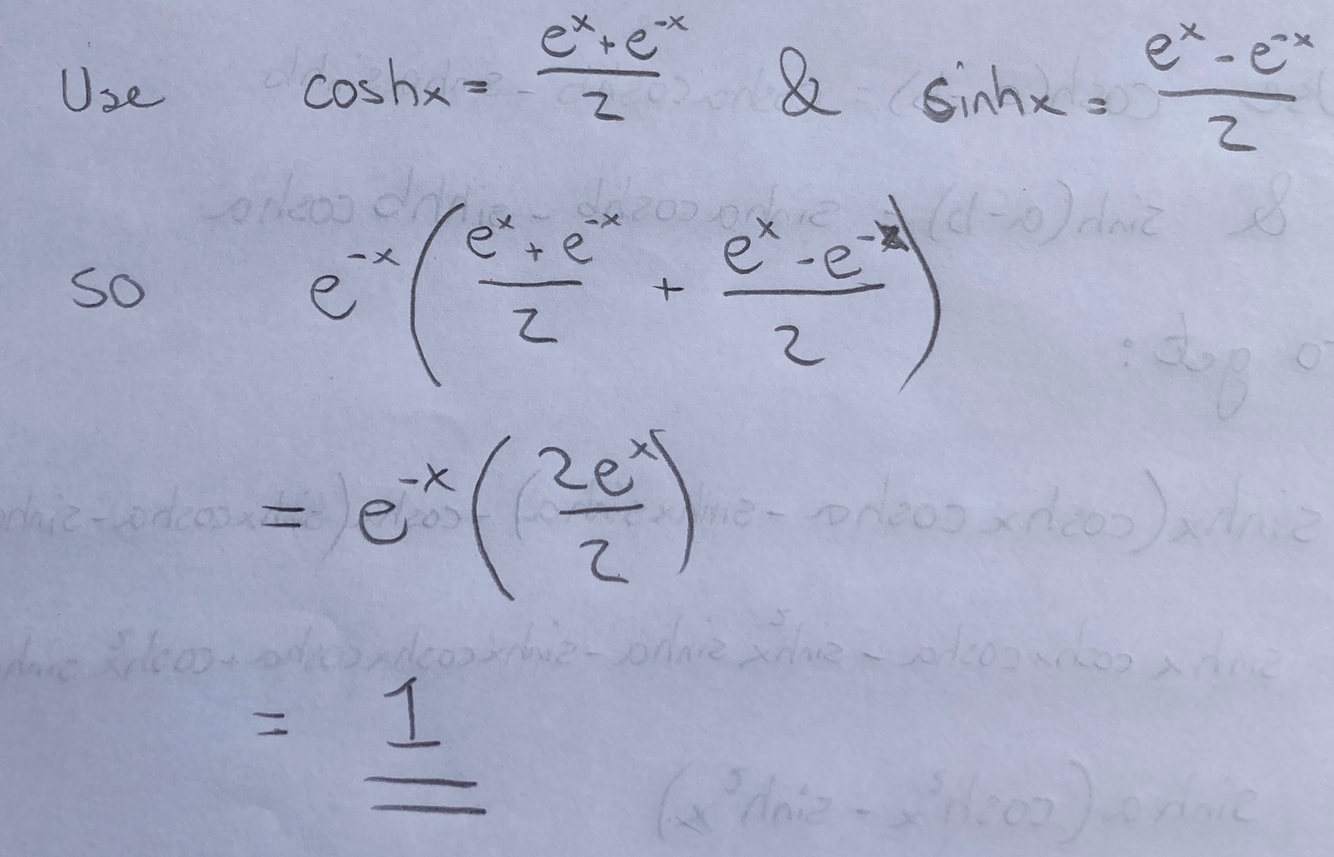 Use coshx = (e^x + e^-x)/2 & sinhx = (e^x - e^-x)/2
so e^-x ( (e^x + e^-x)/2 + (e^x - e^-x)/2 )
= e^-x ( 2e^x/2 )
= 1